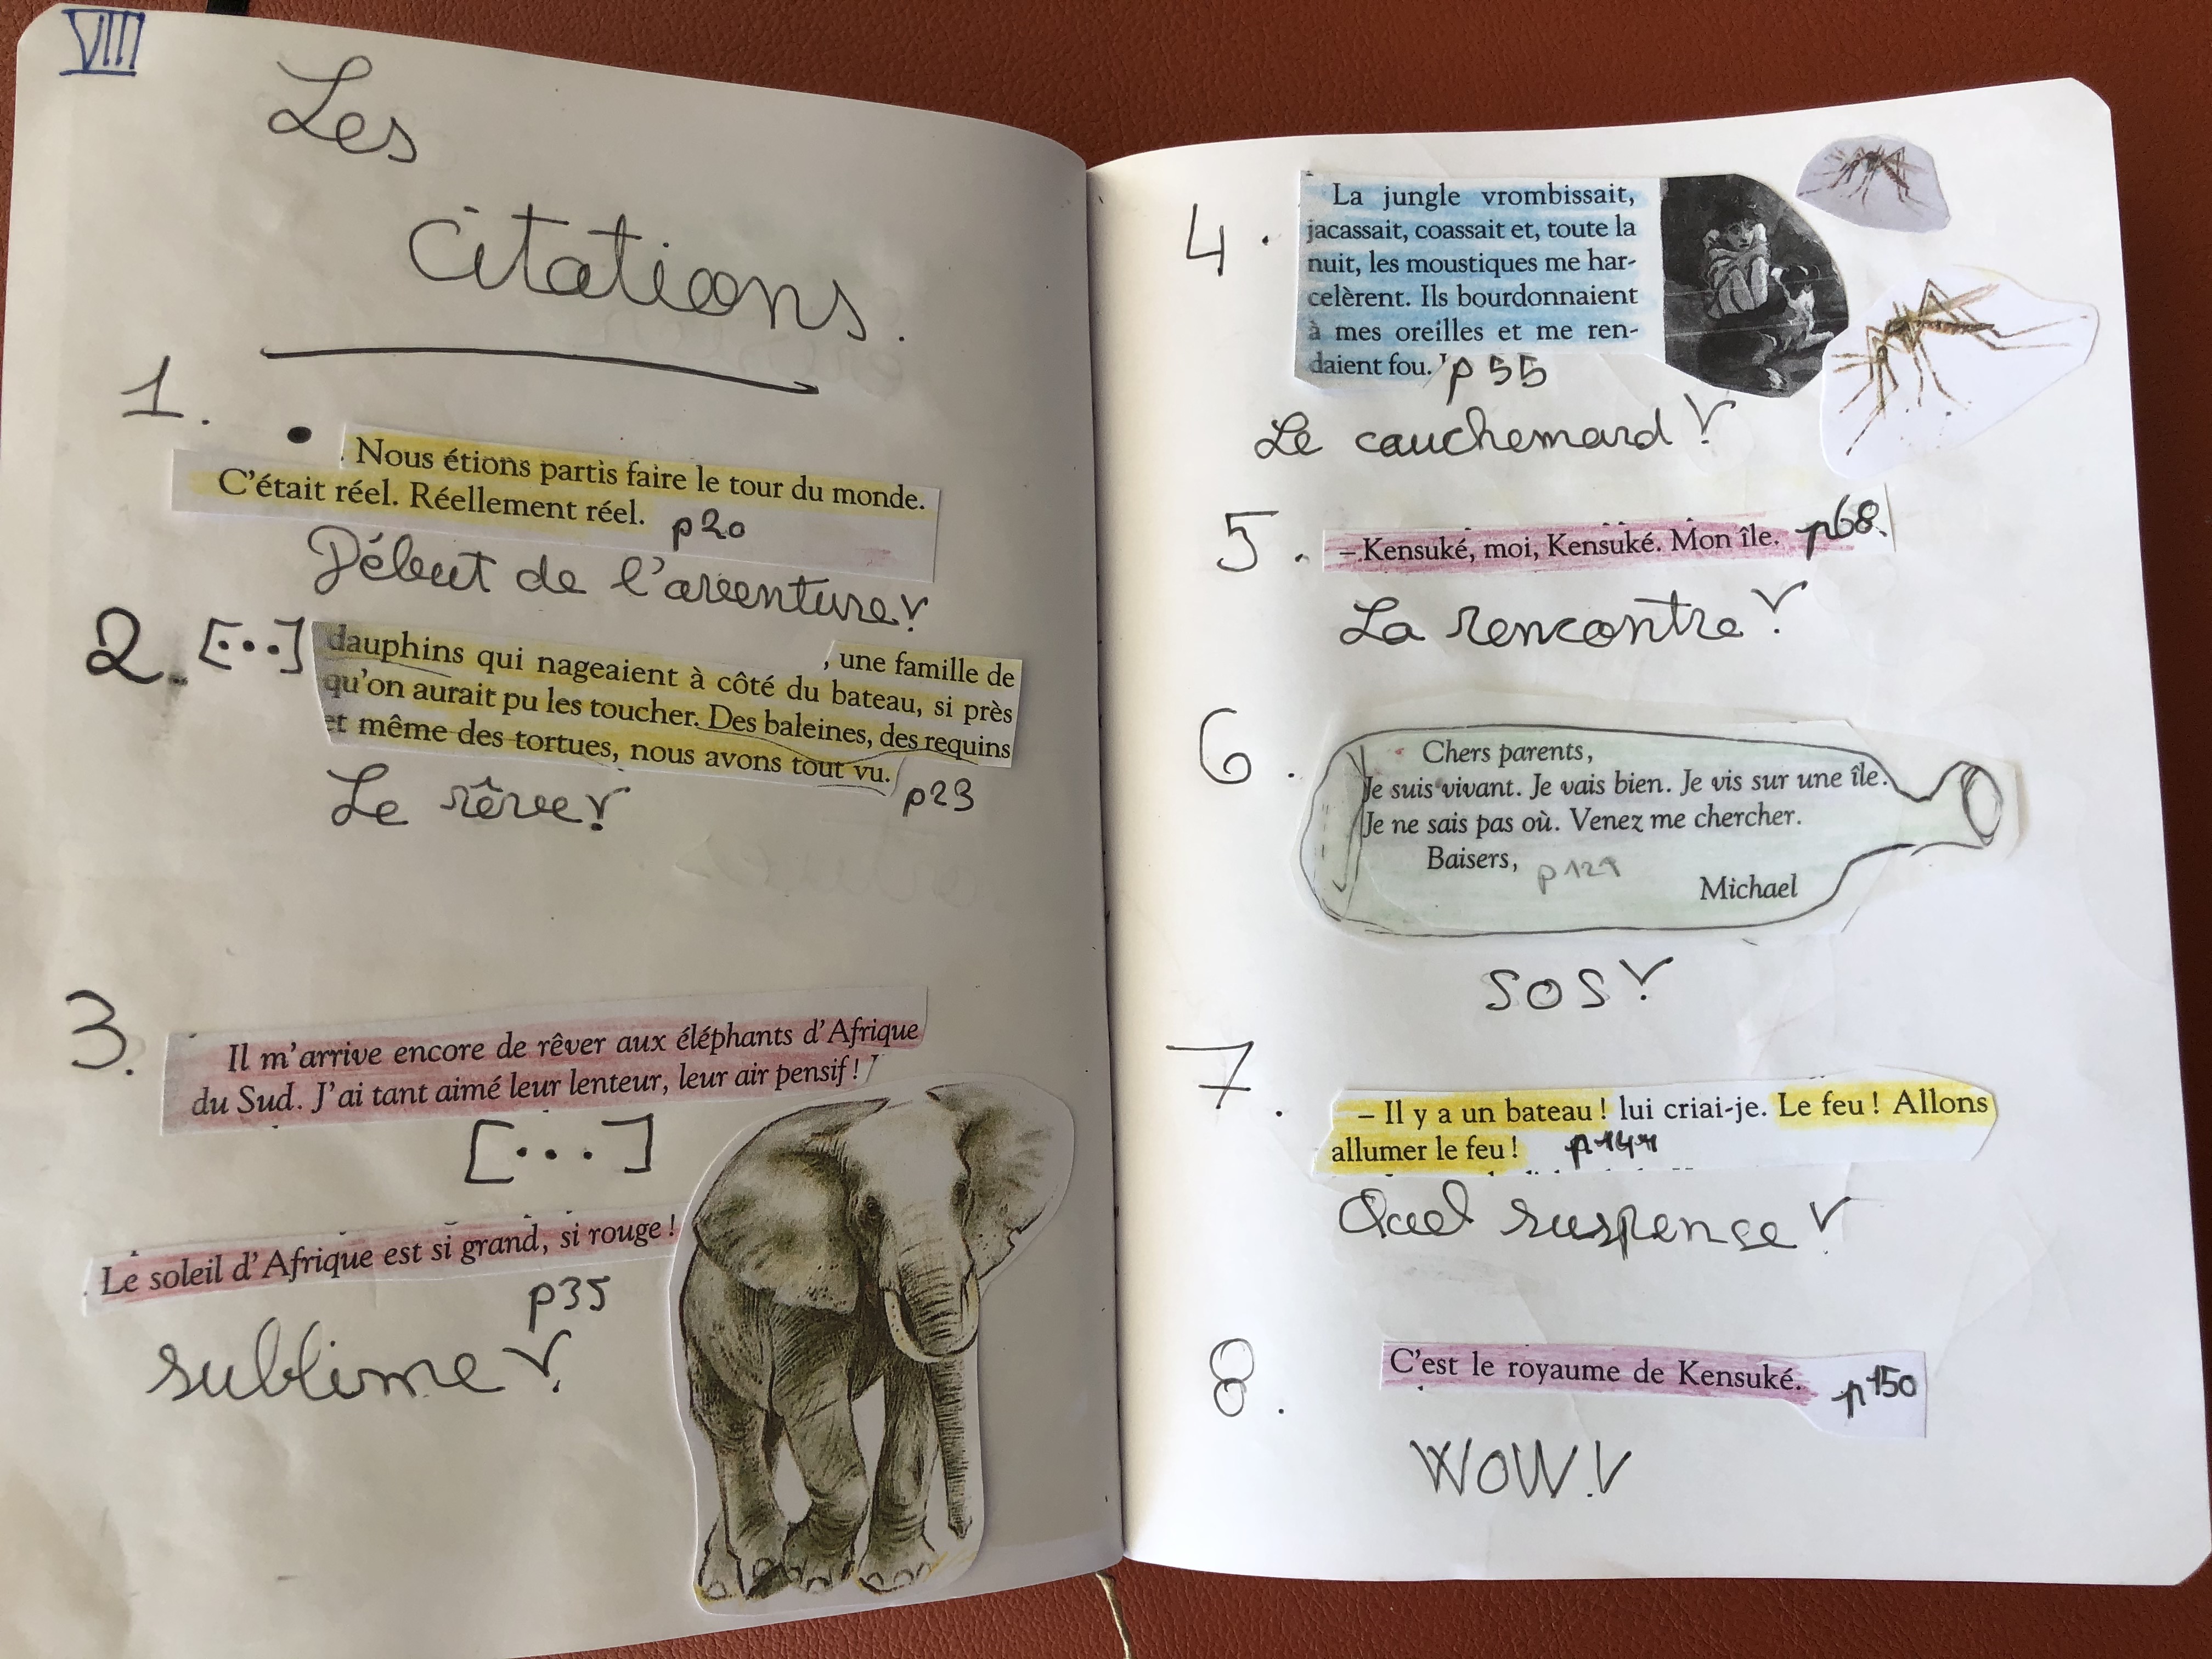 VIII
Les
citations.
1.
• Nous étions partis faire le tour du monde.
C'était réel. Réellement réel. p20
Début de l'aventure!
2. [...]
, une famille de
dauphins qui nageaient à côté du bateau, si près
qu'on aurait pu les toucher. Des baleines, des requins
et même des tortues, nous avons tout vu.
p23
Le rêve!
3.
Il m'arrive encore de rêver aux éléphants d'Afrique
du Sud. J'ai tant aimé leur lenteur, leur air pensif !
[...]
Le soleil d'Afrique est si grand, si rouge !
p35
sublime!
4.
La jungle vrombissait,
jacassait, coassait et, toute la
nuit, les moustiques me har-
celèrent. Ils bourdonnaient
à mes oreilles et me ren-
daient fou. p55
Le cauchemard!
5. – Kensuké, moi, Kensuké. Mon île. p68.
La rencontre!
6.
Chers parents,
Je suis vivant. Je vais bien. Je vis sur une île.
Je ne sais pas où. Venez me chercher.
Baisers,
Michael
SOS!
7.
– Il y a un bateau ! lui criai-je. Le feu ! Allons
allumer le feu !
Quel suspense!
8. C'est le royaume de Kensuké. p150
WOW!